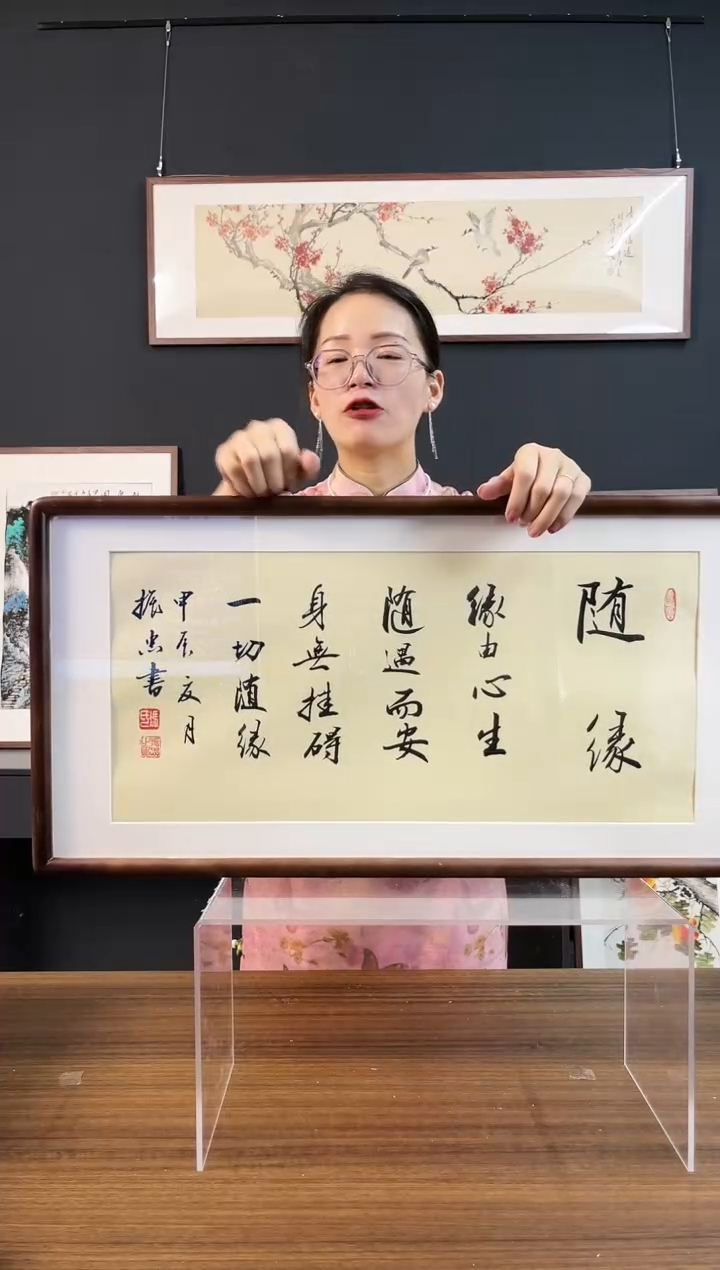 随缘
缘由心生
随遇而安
身無挂碍
一切随缘
甲辰夏月
振忠書